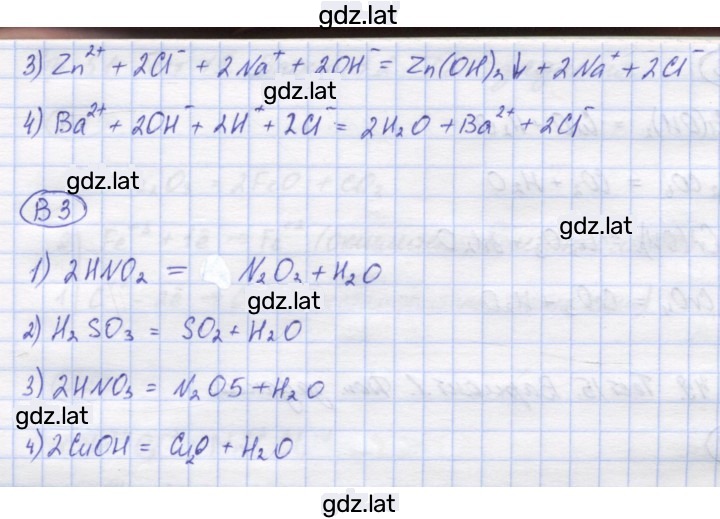 gdz.lat
3) Zn²⁺ + 2Cl⁻ + 2Na⁺ + 2OH⁻ = Zn(OH)₂↓ + 2Na⁺ + 2Cl⁻
gdz.lat
4) Ba²⁺ + 2OH⁻ + 2H⁺ + 2Cl⁻ = 2H₂O + Ba²⁺ + 2Cl⁻
gdz.lat
В3
gdz.lat
1) 2HNO₂ = N₂O₂ + H₂O
gdz.lat
2) H₂SO₃ = SO₂ + H₂O
3) 2HNO₃ = N₂O5 + H₂O
gdz.lat
4) 2CuOH = Cu₂O + H₂O
gdz.lat